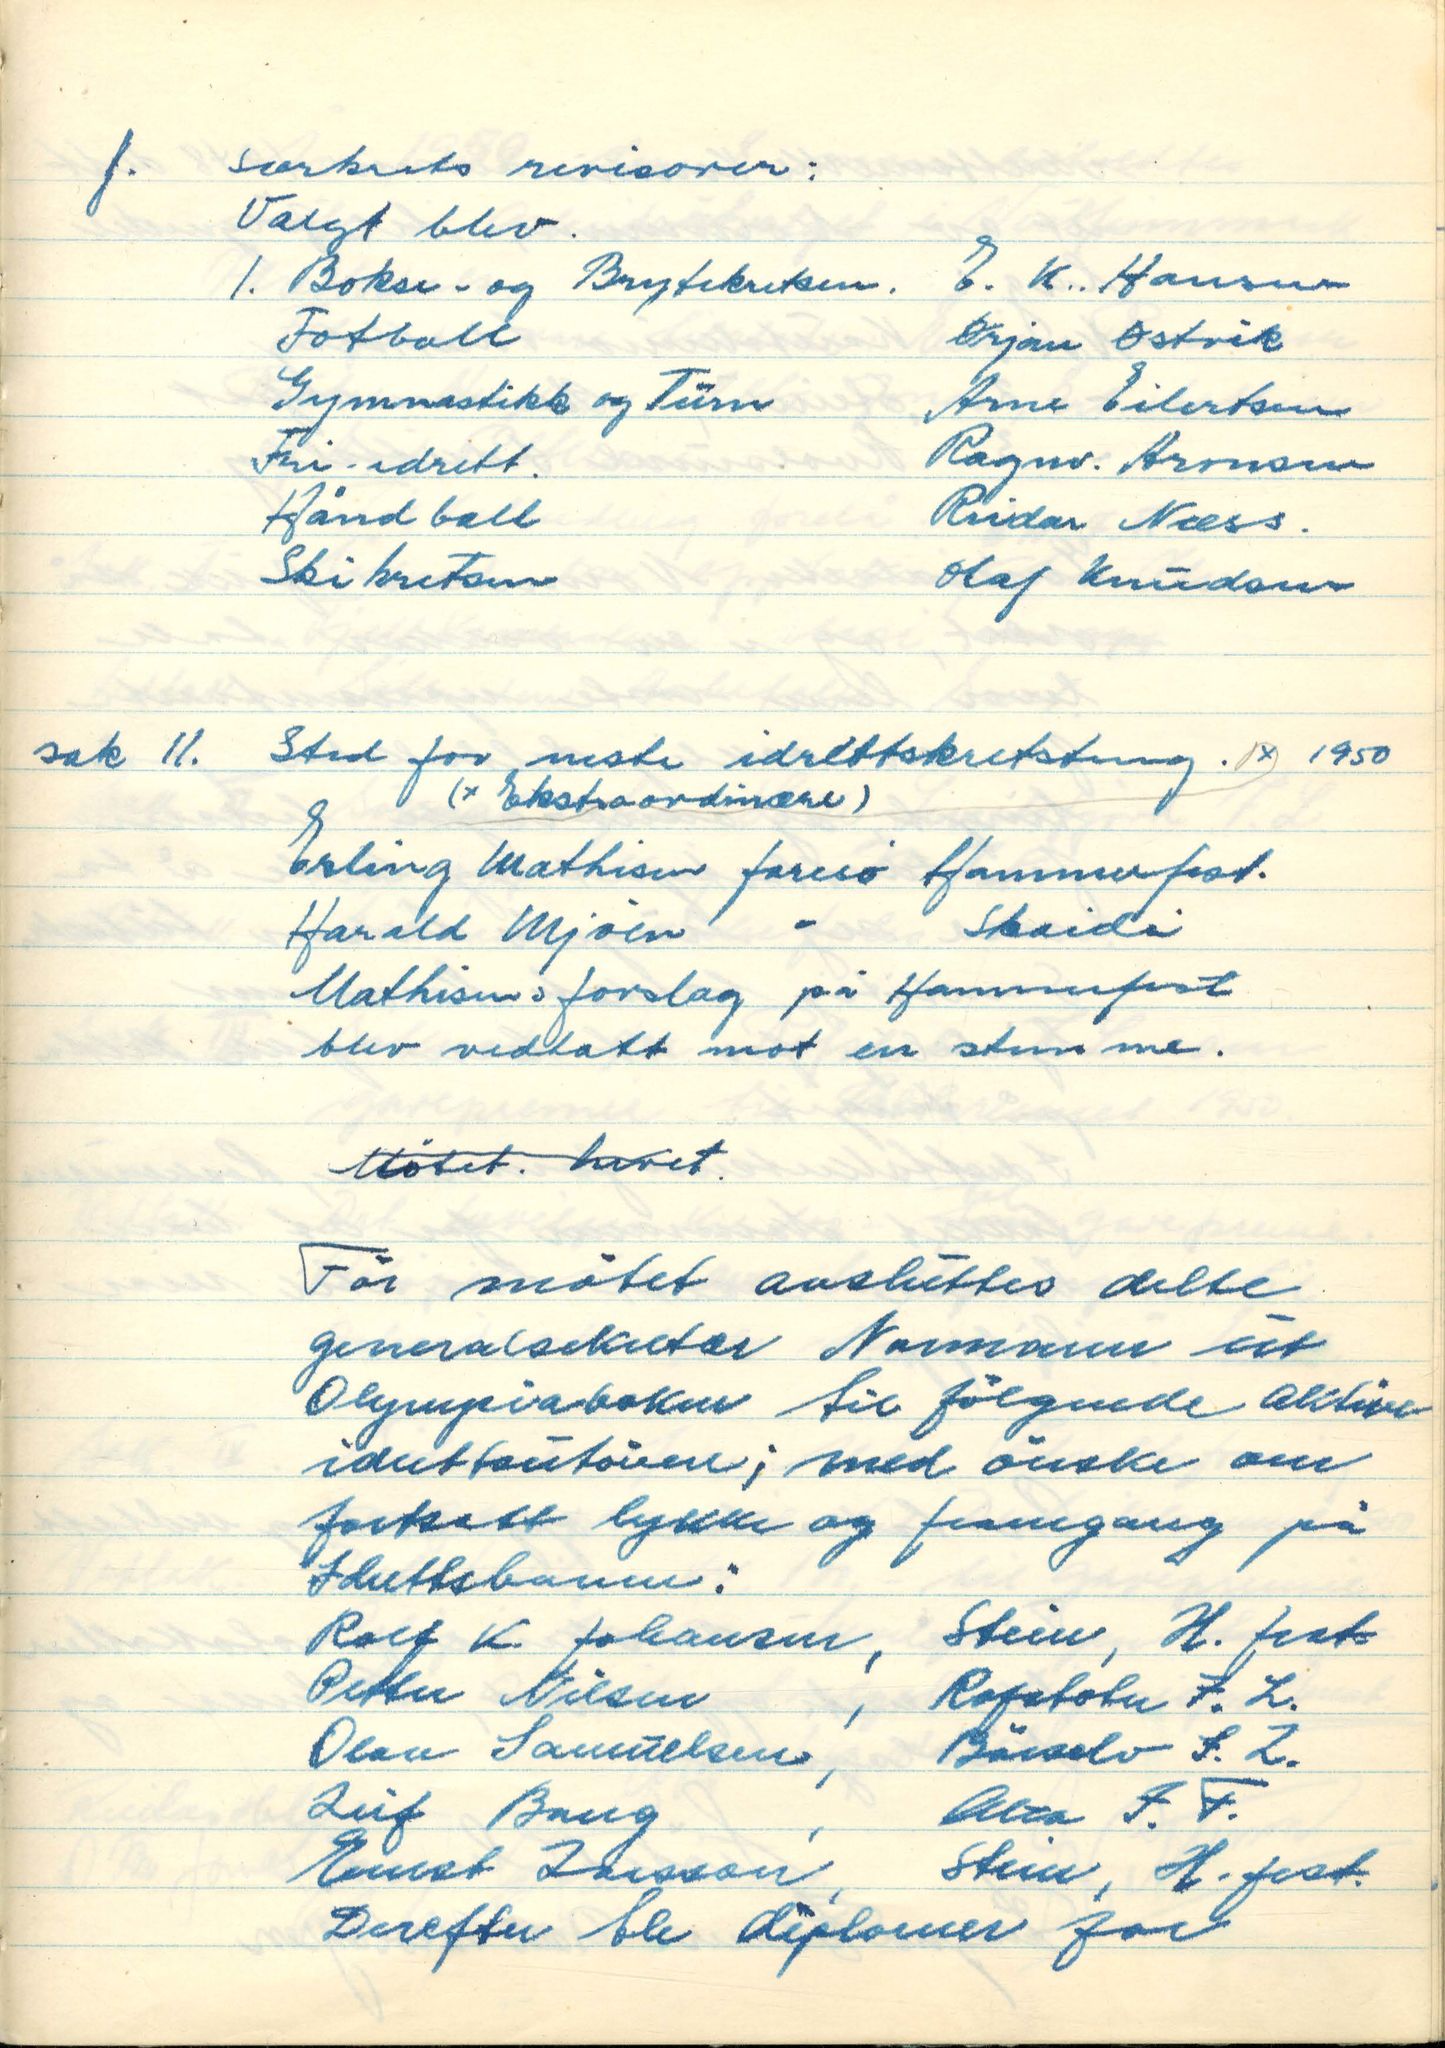 f. særkrets revisorer:
Valgt blev.
1. Bokse- og Brytekretsen. E. K. Hansen
Fotball Ørjan Østvik
Gymnastikk og Turn Arne Eilertsen
Fri-idrett. Ragnv. Aronsen
Håndball Reidar Næss.
Skikretsen Olaf Knudsen
sak 11. Sted for neste idrettskretsting. (x) 1950
(x Ekstraordinære)
Erling Mathisen foreslo Hammerfest.
Harald Mjøen - Skaidi
Mathisens forslag på Hammerfest
blev vedtatt mot en stemme.
Møtet hevet.
Før møtet avsluttes delte
generalsekretær Normann ut
Olympiaboken til følgende aktive
idrettsutøvere; med ønske om
fortsatt lykke og framgang på
Idrettsbanen:
Rolf K. Johansen, Stein, H.fest
Petter Nilsen, Rafsbotn I. L.
Olav Samuelsen, Børselv I. L.
Leif Baug, Alta I. F.
Ernst Larsson, Stein, H.fest.
Derefter ble diplomer for